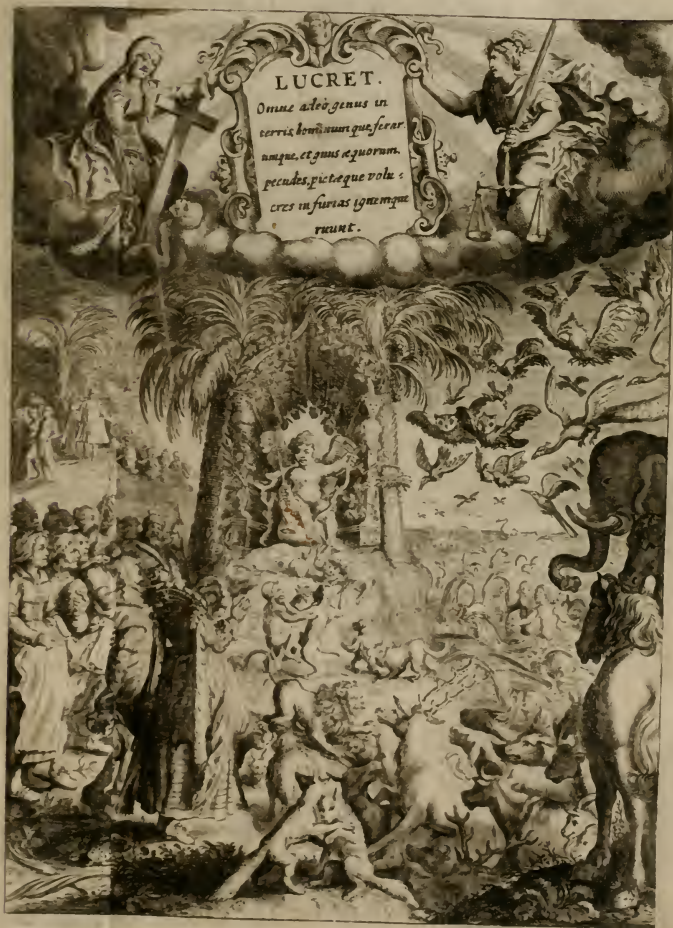 LUCRET.
Omne adeò genus in
terris hominumque, ferar
umque, et genus æquorum,
pecudes, pictæque volu:
cres in furias ignemque
ruunt.